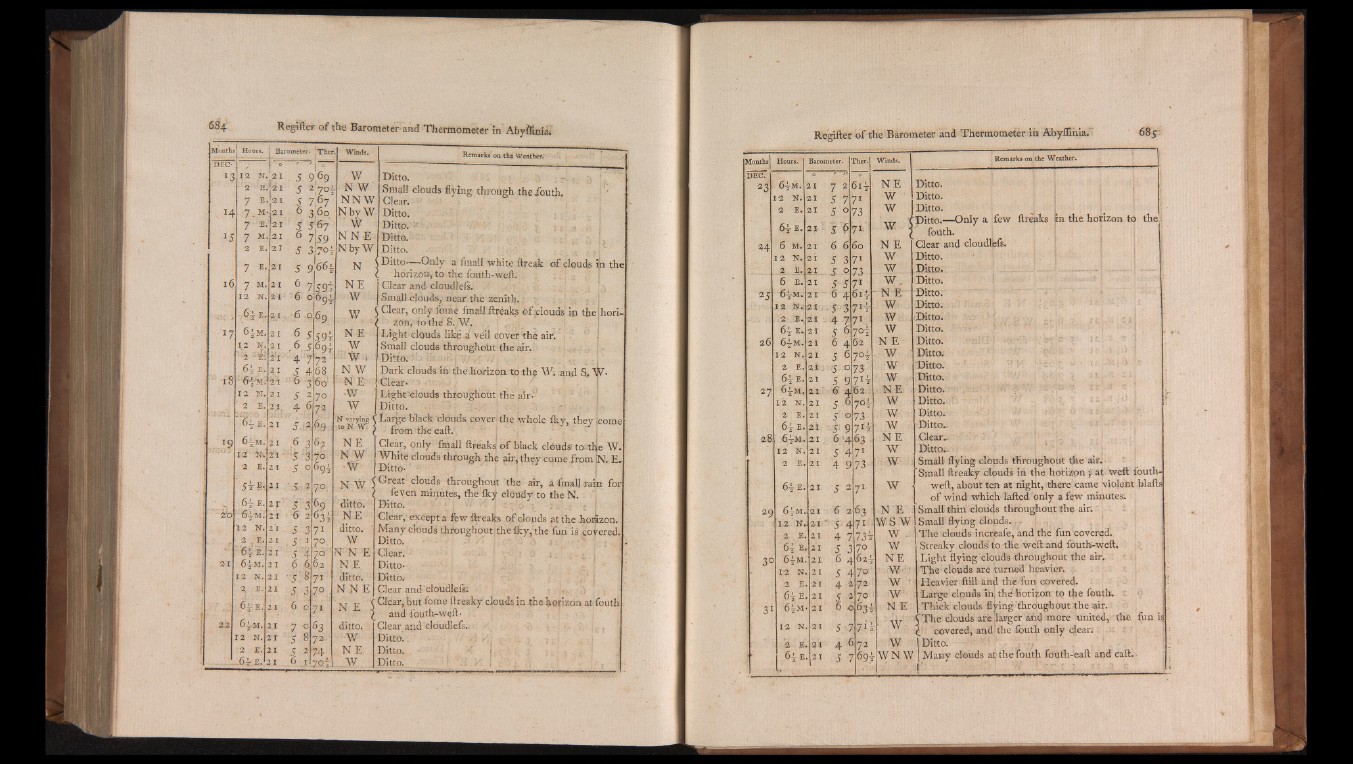 684 Regiſter of the Barometer and Thermometer in Abyſſinia.
Months Hours. Barometer. Ther. Winds. Remarks on the Weather.
DEC.
13 12 N. 21 5 9 69 W Ditto.
2 E. 21 5 2 70½ N W Small clouds flying through the ſouth.
7 E. 21 5 7 67 N N W Clear.
14 7 M. 21 6 3 60 N by W Ditto.
7 E. 21 5 5 67 W Ditto.
15 7 M. 21 6 7 59 N N E Ditto.
2 E. 21 5 3 70½ N by W Ditto.
7 E. 21 5 9 66½ N Ditto.—Only a ſmall white ſtreak of clouds in the
horizon, to the ſouth-weſt.
16 7 M. 21 6 7 59½ N E Clear and cloudleſs.
12 N. 21 6 0 69½ W Small clouds, near the zenith.
6½ E. 21 6 0 69 W Clear, only ſome ſmall ſtreaks of clouds in the hori-
zon, to the S. W.
17 6½ M. 21 6 5 59½ N E Light clouds like a veil cover the air.
12 N. 21 6 5 69½ W Small clouds throughout the air.
2 E. 21 4 7 72 W Ditto.
6½ E. 21 5 4 68 N W Dark clouds in the horizon to the W. and S. W.
18 6½ M. 21 6 3 60 N E Clear.
12 N. 21 5 2 70 W Light clouds throughout the air.
2 E. 21 4 6 72 W Ditto.
6½ E. 21 5 2 69 N varying to N W. Large black clouds cover the whole ſky, they come
from the eaſt.
19 6½ M. 21 6 3 62 N E Clear, only ſmall ſtreaks of black clouds to the W.
12 N. 21 5 3 70 N W White clouds through the air, they come from N. E.
2 E. 21 5 0 69½ W Ditto.
5½ E. 21 5 2 70 N W Great clouds throughout the air, a ſmall rain for
ſeven minutes, the ſky cloudy to the N.
6½ E. 21 5 3 69 ditto. Ditto.
20 6½ M. 21 6 2 63½ N E Clear, except a few ſtreaks of clouds at the horizon.
12 N. 21 5 3 71 ditto. Many clouds throughout the ſky, the ſun is covered.
2 E. 21 5 1 70 W Ditto.
6½ E. 21 5 4 70 N N E Clear.
21 6½ M. 21 6 6 62 N E Ditto.
12 N. 21 5 8 71 ditto. Ditto.
2 E. 21 5 3 70 N N E Clear and cloudleſs.
6½ E. 21 6 0 71 N E Clear, but ſome ſtreaky clouds in the horizon at ſouth
and ſouth-weſt.
22 6½ M. 21 7 0 63 ditto. Clear and cloudleſs.
12 N. 21 5 8 72 W Ditto.
2 E. 21 5 2 74 N E Ditto.
6½ E. 21 6 1 70½ W Ditto.
Regiſter of the Barometer and Thermometer in Abyſſinia. 685
Months Hours. Barometer. Ther. Winds. Remarks on the Weather.
DEC.
23 6½ M. 21 7 2 61½ N E Ditto.
12 N. 21 5 7 71 W Ditto.
2 E. 21 5 0 73 W Ditto.
6½ E. 21 5 6 71 W Ditto.—Only a few ſtreaks in the horizon to the
ſouth.
24 6 M. 21 6 6 60 N E Clear and cloudleſs.
12 N. 21 5 3 71 W Ditto.
2 E. 21 5 0 73 W Ditto.
6 E. 21 5 5 71 W Ditto.
25 6½ M. 21 6 4 61½ N E Ditto.
12 N. 21 5 3 71½ W Ditto.
2 E. 21 4 7 71 W Ditto.
6½ E. 21 5 6 70½ W Ditto.
26 6½ M. 21 6 4 62 N E Ditto.
12 N. 21 5 6 70½ W Ditto.
2 E. 21 5 0 73 W Ditto.
6½ E. 21 5 9 71½ W Ditto.
27 6½ M. 21 6 4 62 N E Ditto.
12 N. 21 5 6 70½ W Ditto.
2 E. 21 5 0 73 W Ditto.
6½ E. 21 5 9 71½ W Ditto.
28 6½ M. 21 6 4 63 N E Clear.
12 N. 21 5 4 71 W Ditto.
2 E. 21 4 9 73 W Small flying clouds throughout the air.
6½ E. 21 5 2 71 W Small ſtreaky clouds in the horizon; at weſt ſouth-
weſt, about ten at night, there came violent blaſts
of wind which laſted only a few minutes.
29 6½ M. 21 6 2 63 N E Small thin clouds throughout the air.
12 N. 21 5 4 71 W S W Small flying clouds.
2 E. 21 4 7 73½ W The clouds increaſe, and the ſun covered.
6½ E. 21 5 3 70 W Streaky clouds to the weſt and ſouth-weſt.
30 6½ M. 21 6 4 62½ N E Light flying clouds throughout the air.
12 N. 21 5 4 70 W The clouds are turned heavier.
2 E. 21 4 2 72 W Heavier ſtill and the ſun covered.
6½ E. 21 5 2 70 W Large clouds in the horizon to the ſouth.
31 6½ M. 21 6 0 63½ N E Thick clouds flying throughout the air.
12 N. 21 5 7 71½ W The clouds are larger and more united, the ſun is
covered, and the ſouth only clear.
2 E. 21 4 6 72 W Ditto.
6½ E. 21 5 7 69½ W N W Many clouds at the ſouth ſouth-eaſt and eaſt.